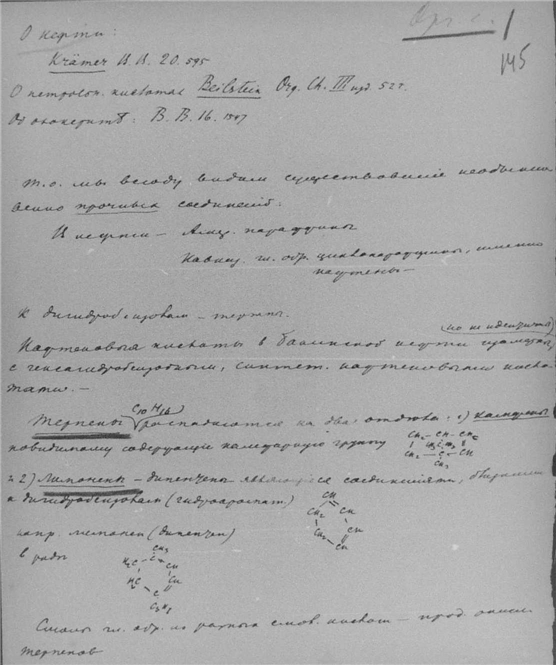 Орг. с. 1
145
О нефти:
Krämer B. B. 20. 595
О петрол. кислотах Beilstein Org. Ch. III изд. 527.
Об озокерите: B. B. 16. 1547
Т. о. мы всюду видим существование необыкно
венно прочных соединений:
В нефти – Амер. парафины
Кавказ. гл. обр. циклопарафины, именно
нафтены –
к дигидробензолам – терпены.
(но не идентичны)
Нафтеновыя кислоты в бакинской нефти
с гексагидробензойными, синтет. нафтеновыми кисло
тами. –
C10 H16
Терпены распадаются на два отдела: 1) камфены
повидимому содержащие камфарную группу
2) Лимонены – дипентены являющиеся соединениями, близкими
к дигидробензолам (гидроаромат.)
напр. лимонен (дипентен)
в ряды
CH3
C
H2C
CH
H2C
CH
C
C3H7
Смолы гл. обр. из разных смол. кислот – прод. окисл.
терпенов